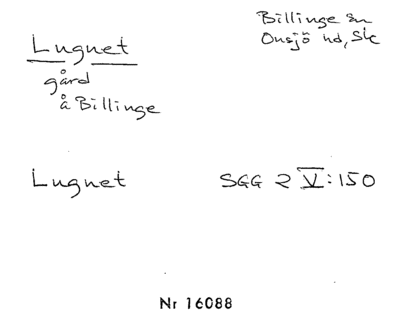 Billinge sn
Onsjö hd, Sk
Lugnet
gård
å Billinge
Lugnet SGG 2 V:150
Nr 16088